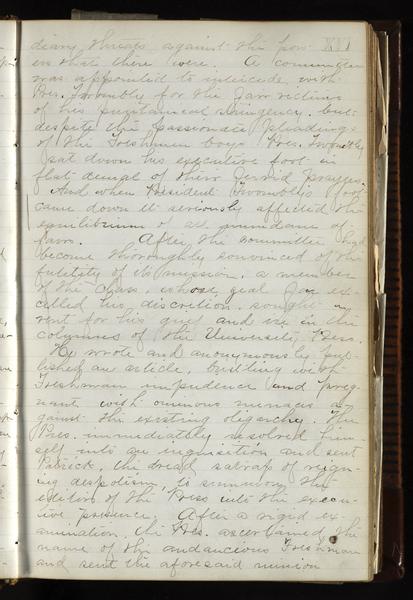 XVI
dian threats against the pow-
ers that there were. A committee
was appointed to intercede with
Pres. Twombly for the victims
of his puritanical stringency but
despite the passionate pleadings
of the Freshmen boys Pres. Twombly
sat down his executive foot in
flat denial of their fervid prayers.
And when President Twombly's foot
came down it seriously affected the
equilibrium of all mundane af-
fairs. After the committee had
become thoroughly convinced of the
futility of its mission, a member
of the class, whose zeal far ex-
celled his discretion, sought a
vent for his grief and ire in the
columns of the University Press.
He wrote and anonymously pub-
lished an article, bristling with
Freshman impudence and preg-
nant with ominous menaces a-
gainst the existing oligarchy. The
Pres. immediately resolved him-
self into an inquisition and sent
Patrick, the dread satrap of reign-
ing despotism, to summon the
editor of the Press into the execu-
tive presence. After a rigid ex-
amination, the Pres. ascertained the
name of the audacious Freshman
and sent the aforesaid minion